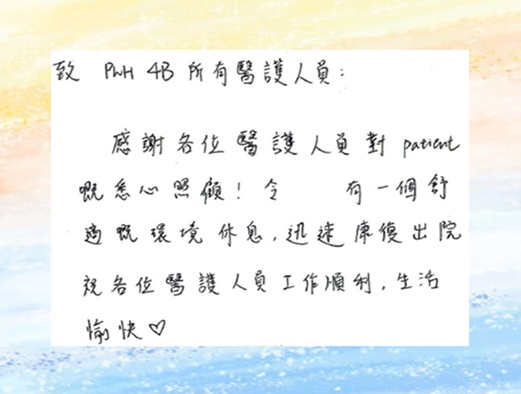 致 PWH 4B 所有醫護人員：
感謝各位醫護人員對 patient
嘅悉心照顧！令 有一個舒
適嘅環境休息，迅速康復出院
祝各位醫護人員工作順利，生活
愉快♡